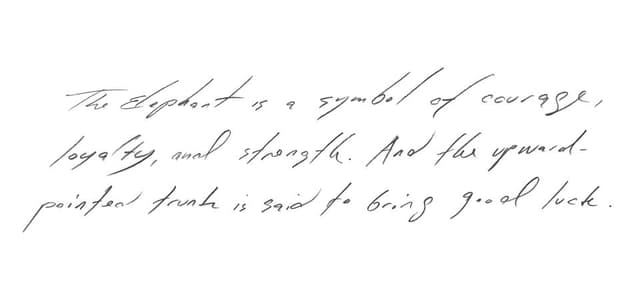 The Elephant is a symbol of courage,
loyalty, and strength. And the upward-
pointed trunk is said to bring good luck.